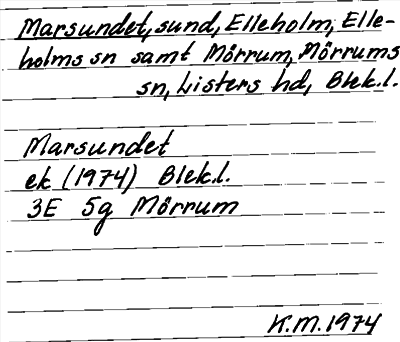 Marsundet, sund, Elleholm, Elle-
holms sn samt Mörrum, Mörrums
sn, Listers hd, Blek.l.
Marsundet
ek (1974) Blek.l.
3E 5g Mörrum
K.M. 1974